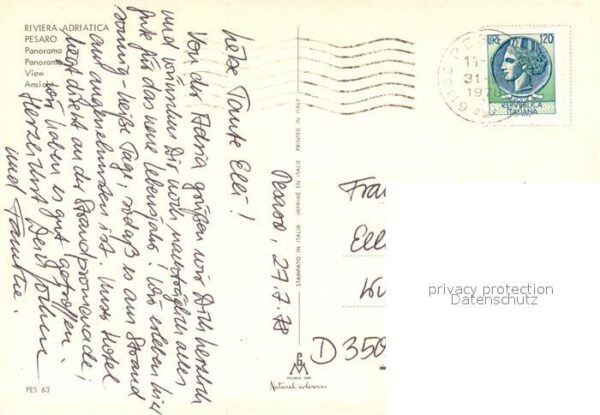 RIVIERA ADRIATICA
PESARO
Panorama
Panorama
View
Ansicht
Pesaro, 27.7.78
Liebe Tante Elli!
Von der Adria grüßen wir Dich herzlich
und wünschen Dir noch nachträglich alles
Gute für das neue Lebensjahr! Wir erleben hier
sonnig-heiße Tage, sodaß es am Strand
am angenehmsten ist. Unser Hotel
liegt direkt an der Strandpromenade,
wir haben es gut getroffen.
Herzlichst Dein
und Familie.
PES 63
STAMPATO IN ITALIA IMPRIMÉ EN ITALIE PRINTED IN ITALY
MILANO
Natural colours
LIRE 120
REPVBBLICA
ITALIANA
61100 PE
31
Fra
Elli
D 350
privacy protection
Datenschutz